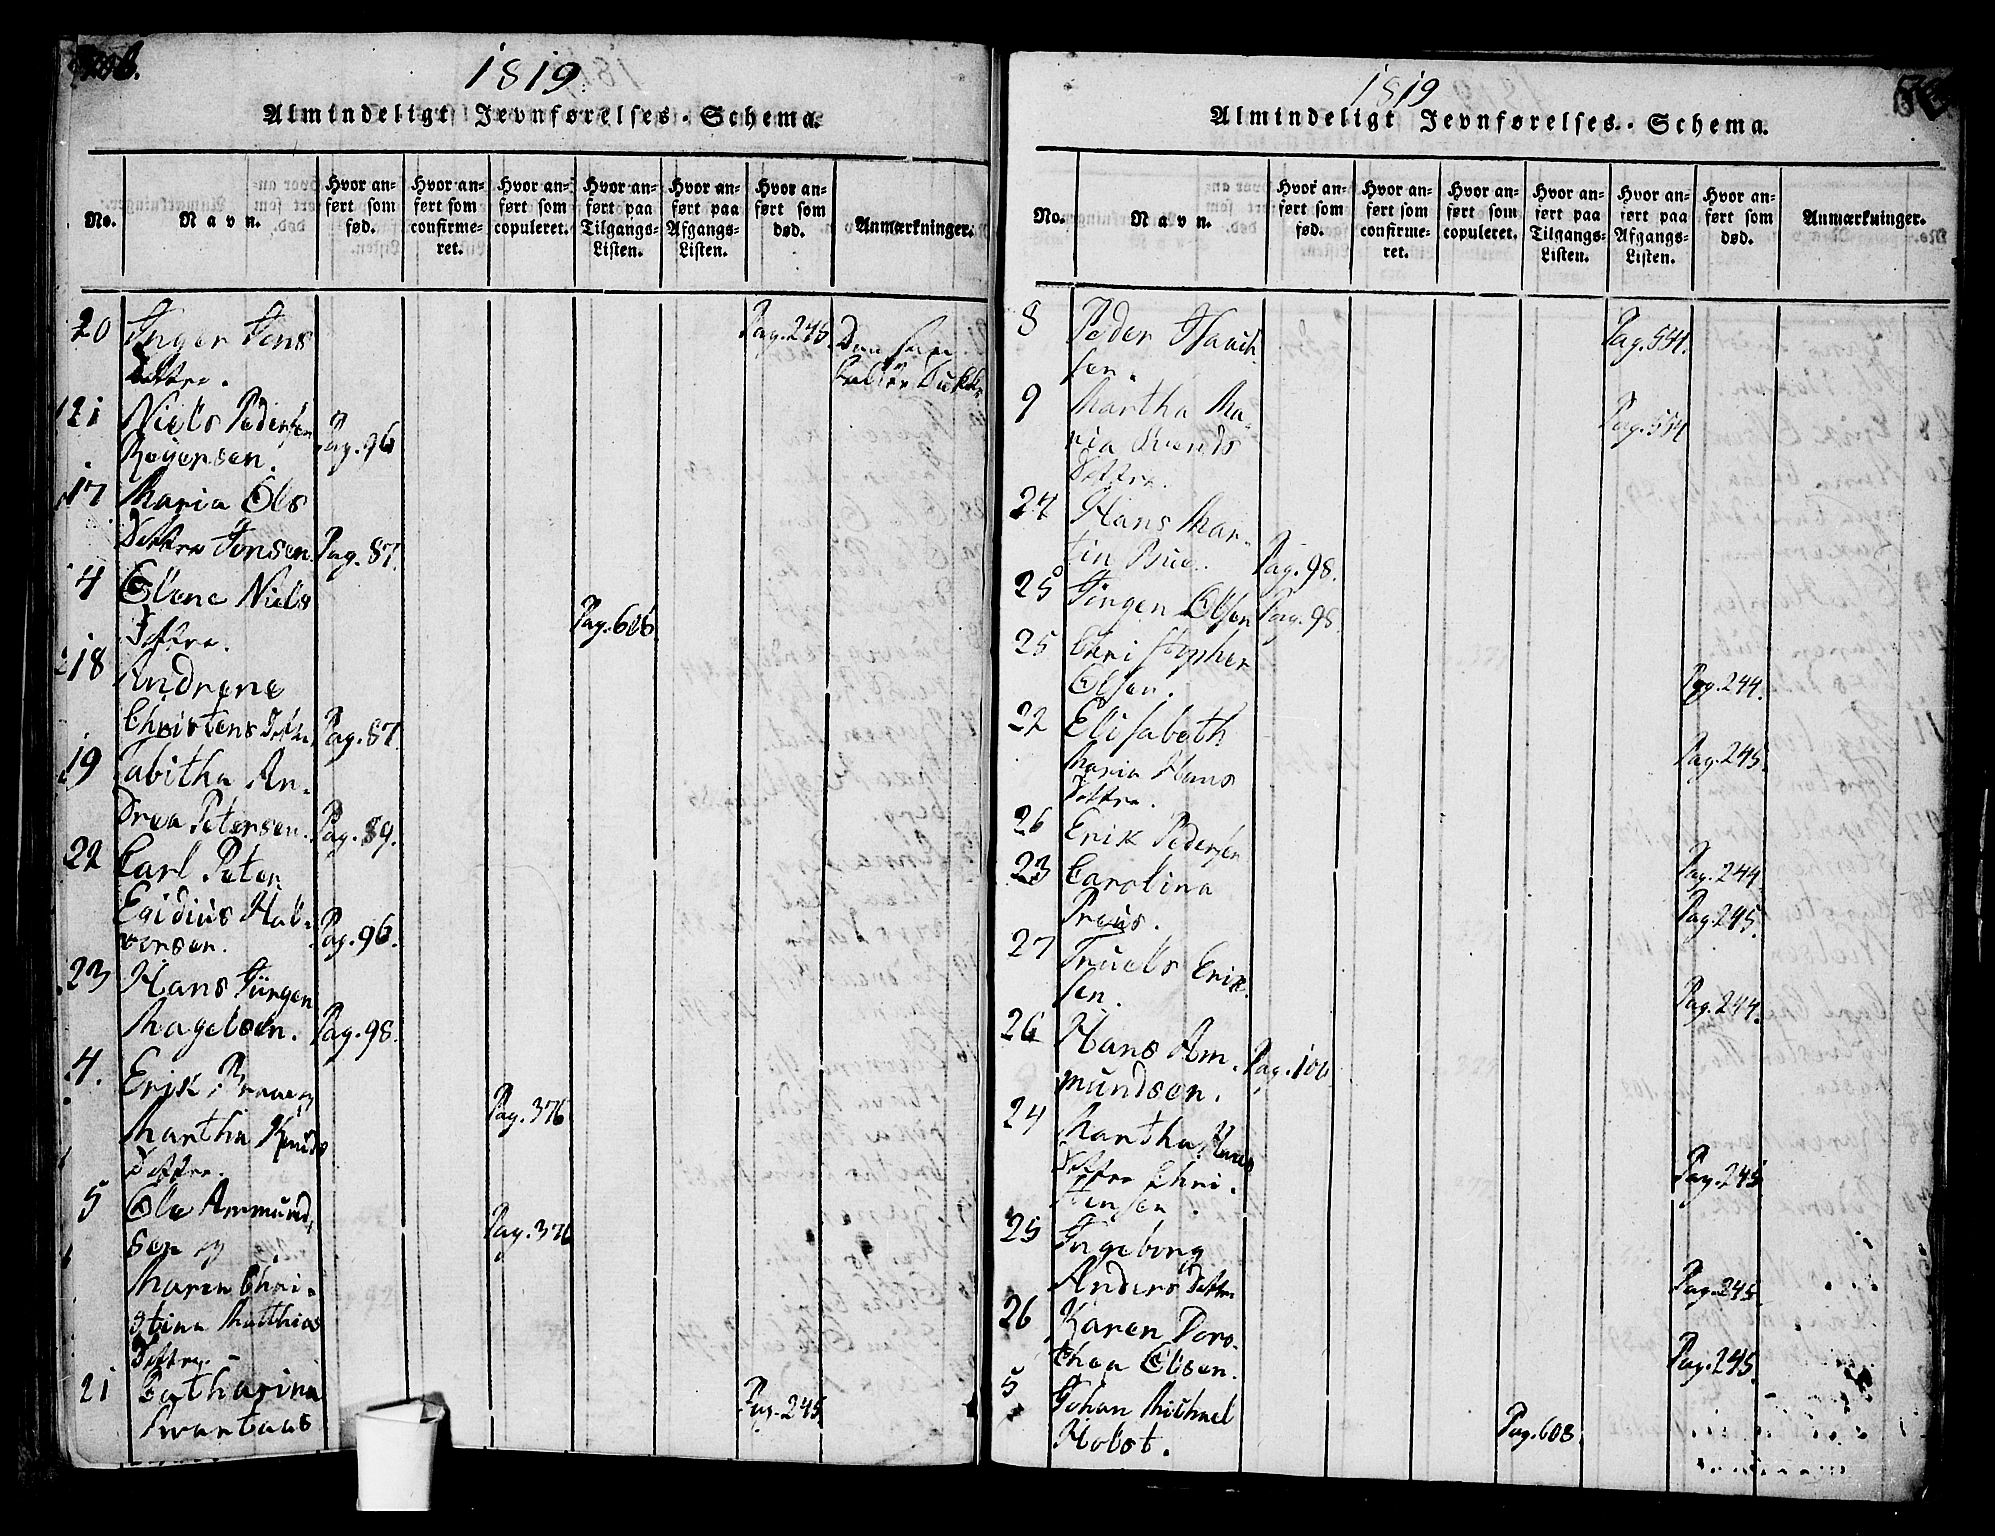 1819
Almindeligt Jevnførelses-Schema.
No.
Navn.
Hvor an-
ført som
fød.
Hvor an-
ført som
confirme-
ret.
Hvor an-
ført som
copuleret.
Hvor an-
ført paa
Tilgangs-
Listen.
Hvor an-
ført paa
Afgangs-
Listen.
Hvor an-
ført som
død.
Anmærkninger.
20 Inger Jens Pag. 245.
Dattre.
21 Niels Pedersen
Røyersen. Pag. 96
17 Maria Ols
Dattre Jonsen. Pag. 87.
4 Olene Niels
Dottre. Pag. 606
18 Andrene
Christens Pag. 87.
19 Tabitha An-
drea Petersen. Pag. 89.
22 Carl Peter
Egidius Hal-
vorsen. Pag. 96.
23 Hans Jürgen
Magelsen. Pag. 98.
4. Erik
Pag. 376
Martha Knuds
Dottre.
5 Ole Ammund-
sen og Pag. 376
Maren Chri-
stina Matthias
Dottre.
21 Catharina
Svartaas Pag. 245
1819
Almindeligt Jevnførelses-Schema.
No.
Navn.
Hvor an-
ført som
fød.
Hvor an-
ført som
confirme-
ret.
Hvor an-
ført som
copuleret.
Hvor an-
ført paa
Tilgangs-
Listen.
Hvor an-
ført paa
Afgangs-
Listen.
Hvor an-
ført som
død.
Anmærkninger.
8 Peder Pag. 554.
sen.
9 Martha Ma-
ria Svends Pag. 554
Dottre.
24 Hans Mar-
tin Bue. Pag. 98.
25 Jörgen Olsen Pag. 98.
25 Christopher
Olsen. Pag. 244.
22 Elisabeth
Maria Hans Pag. 245.
Dottre.
26 Erik Pedersen Pag. 244.
23 Carolina
Preus. Pag. 245.
27 Truels Erik-
sen. Pag. 244.
26 Hans Am-
mundsen. Pag. 100.
24 Martha Hans
Dottre Chri-
stensen. Pag. 245
25 Ingeborg
Anders Dottre Pag. 245.
26 Karen Doro-
thea Olsen. Pag. 245.
5 Johan Michael
Holst. Pag. 608.